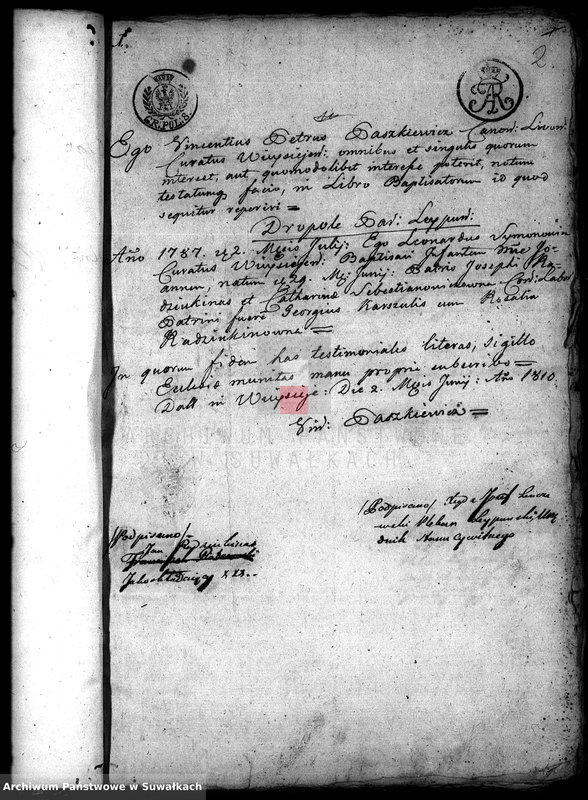 1.
2.
GR.POL.5.
Ego Vincentius Petrus Paszkiewicz Canon: Livon:
Curatus Wieysiejen: omnibus et singulis quorum
interest, aut, quomodolibet interesse poterit, notum
testatumq facio, in Libro Baptisatorum id quod
sequitur reperiri =
Dropole Par: Leypun:
Año 1787. 2. Mẽsis Julij: Ego Leonardus Symonowicz
Curatus Wieysiejen: Baptisavi Infantem nõie Jo-
annem, natum 29. Mẽ: Junij: Patris Josephi Ra-
dziukinas et Catharinæ Sebestianowiczowne Con: L:
Patrini fuere Georgius Karszulis cum Rosalia
Radziukinowna =
In quorum fidem has testimoniales literas, sigillo
Ecclesiæ munitas manu propria subscribo =
Datt in Wieysieje: Die 2. Mẽsis Junij: Año 1810.
Vin: Paszkiewicz =
/Podpisano/ Xiądz Józef
Pleban Leypunski Urzę
dnik Stanu Cywilnego
/Podpisano/
Jan